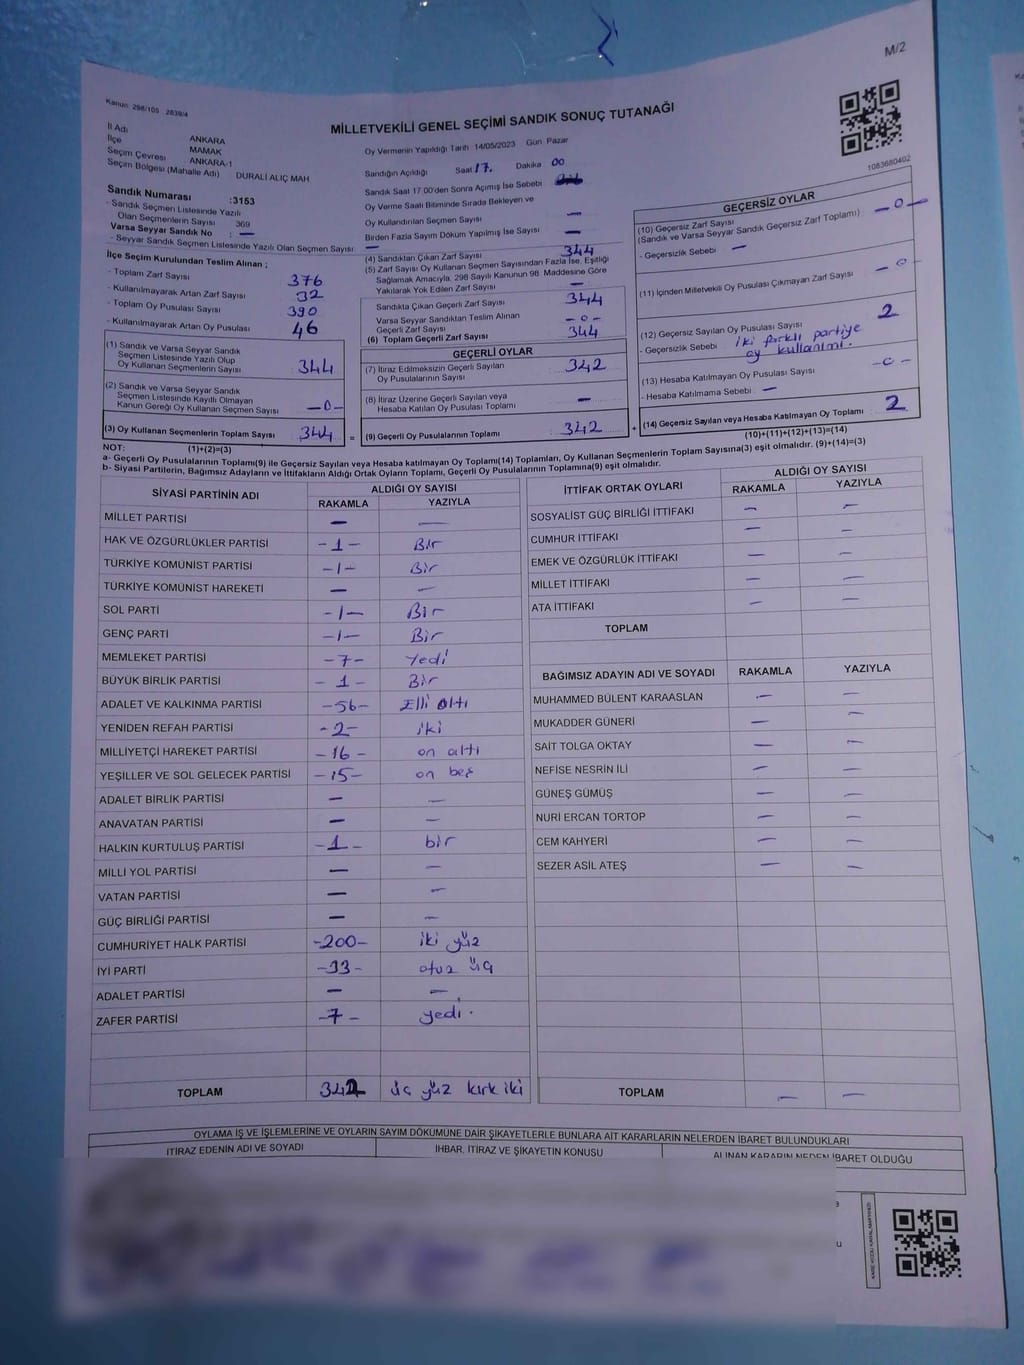 M/2
Kanun: 298/105 2839/4
MİLLETVEKİLİ GENEL SEÇİMİ SANDIK SONUÇ TUTANAĞI
1083680402
İl Adı ANKARA
İlçe MAMAK
Seçim Çevresi ANKARA-1
Seçim Bölgesi (Mahalle Adı) DURALİ ALIÇ MAH
Sandık Numarası :3153
- Sandık Seçmen Listesinde Yazılı
Olan Seçmenlerin Sayısı 369
Varsa Seyyar Sandık No : —
- Seyyar Sandık Seçmen Listesinde Yazılı Olan Seçmen Sayısı : —
İlçe Seçim Kurulundan Teslim Alınan ;
- Toplam Zarf Sayısı 376
- Kullanılmayarak Artan Zarf Sayısı 32
- Toplam Oy Pusulası Sayısı 390
- Kullanılmayarak Artan Oy Pusulası 46
(1) Sandık ve Varsa Seyyar Sandık
Seçmen Listesinde Yazılı Olup
Oy Kullanan Seçmenlerin Sayısı 344
(2) Sandık ve Varsa Seyyar Sandık
Seçmen Listesinde Kayıtlı Olmayan
Kanun Gereği Oy Kullanan Seçmen Sayısı —0—
(3) Oy Kullanan Seçmenlerin Toplam Sayısı 344 =
Oy Vermenin Yapıldığı Tarih 14/05/2023 Gün Pazar
Sandığın Açıldığı Saat 17. Dakika 00
Sandık Saat 17 00'den Sonra Açılmış İse Sebebi
Oy Verme Saati Bitiminde Sırada Bekleyen ve
Oy Kullandırılan Seçmen Sayısı —
Birden Fazla Sayım Döküm Yapılmış İse Sayısı —
(4) Sandıktan Çıkan Zarf Sayısı 344
(5) Zarf Sayısı Oy Kullanan Seçmen Sayısından Fazla İse, Eşitliği
Sağlamak Amacıyla, 298 Sayılı Kanunun 98. Maddesine Göre
Yakılarak Yok Edilen Zarf Sayısı —
Sandıkta Çıkan Geçerli Zarf Sayısı 344
Varsa Seyyar Sandıktan Teslim Alınan
Geçerli Zarf Sayısı —0—
(6) Toplam Geçerli Zarf Sayısı 344
GEÇERLİ OYLAR
(7) İtiraz Edilmeksizin Geçerli Sayılan
Oy Pusulalarının Sayısı 342
(8) İtiraz Üzerine Geçerli Sayılan veya
Hesaba Katılan Oy Pusulası Toplamı —
(9) Geçerli Oy Pusulalarının Toplamı 342 +
GEÇERSİZ OYLAR
(10) Geçersiz Zarf Sayısı —0—
(Sandık ve Varsa Seyyar Sandık Geçersiz Zarf Toplamı)
- Geçersizlik Sebebi —
(11) İçinden Milletvekili Oy Pusulası Çıkmayan Zarf Sayısı —0—
(12) Geçersiz Sayılan Oy Pusulası Sayısı 2
- Geçersizlik Sebebi iki farklı partiye
oy kullanımı.
(13) Hesaba Katılmayan Oy Pusulası Sayısı —0—
- Hesaba Katılmama Sebebi —
(14) Geçersiz Sayılan veya Hesaba Katılmayan Oy Toplamı 2
NOT: (1)+(2)=(3) (10)+(11)+(12)+(13)=(14)
a- Geçerli Oy Pusulalarının Toplamı(9) ile Geçersiz Sayılan veya Hesaba katılmayan Oy Toplamı(14) Toplamları, Oy Kullanan Seçmenlerin Toplam Sayısına(3) eşit olmalıdır. (9)+(14)=(3)
b- Siyasi Partilerin, Bağımsız Adayların ve İttifakların Aldığı Ortak Oyların Toplamı, Geçerli Oy Pusulalarının Toplamına(9) eşit olmalıdır.
SİYASİ PARTİNİN ADI ALDIĞI OY SAYISI
RAKAMLA YAZIYLA
MİLLET PARTİSİ — —
HAK VE ÖZGÜRLÜKLER PARTİSİ -1- Bir
TÜRKİYE KOMÜNİST PARTİSİ -1- Bir
TÜRKİYE KOMÜNİST HAREKETİ — —
SOL PARTİ -1- Bir
GENÇ PARTİ -1- Bir
MEMLEKET PARTİSİ -7- Yedi
BÜYÜK BİRLİK PARTİSİ -1- Bir
ADALET VE KALKINMA PARTİSİ -56- Elli Altı
YENİDEN REFAH PARTİSİ -2- iki
MİLLİYETÇİ HAREKET PARTİSİ -16- on altı
YEŞİLLER VE SOL GELECEK PARTİSİ -15- on beş
ADALET BİRLİK PARTİSİ — —
ANAVATAN PARTİSİ — —
HALKIN KURTULUŞ PARTİSİ -1- bir
MİLLİ YOL PARTİSİ — —
VATAN PARTİSİ — —
GÜÇ BİRLİĞİ PARTİSİ — —
CUMHURİYET HALK PARTİSİ -200- iki yüz
İYİ PARTİ -33- otuz üç
ADALET PARTİSİ — —
ZAFER PARTİSİ -7- yedi.
TOPLAM 342 üç yüz kırk iki
İTTİFAK ORTAK OYLARI ALDIĞI OY SAYISI
RAKAMLA YAZIYLA
SOSYALİST GÜÇ BİRLİĞİ İTTİFAKI — —
CUMHUR İTTİFAKI —
EMEK VE ÖZGÜRLÜK İTTİFAKI — —
MİLLET İTTİFAKI — —
ATA İTTİFAKI — —
TOPLAM
BAĞIMSIZ ADAYIN ADI VE SOYADI RAKAMLA YAZIYLA
MUHAMMED BÜLENT KARAASLAN — —
MUKADDER GÜNERİ — —
SAİT TOLGA OKTAY — —
NEFİSE NESRİN İLİ — —
GÜNEŞ GÜMÜŞ — —
NURİ ERCAN TORTOP — —
CEM KAHYERİ — —
SEZER ASİL ATEŞ — —
TOPLAM — —
OYLAMA İŞ VE İŞLEMLERİNE VE OYLARIN SAYIM DÖKÜMÜNE DAİR ŞİKAYETLERLE BUNLARA AİT KARARLARIN NELERDEN İBARET BULUNDUKLARI
İTİRAZ EDENİN ADI VE SOYADI İHBAR, İTİRAZ VE ŞİKAYETİN KONUSU ALINAN KARARIN NEDEN İBARET OLDUĞU